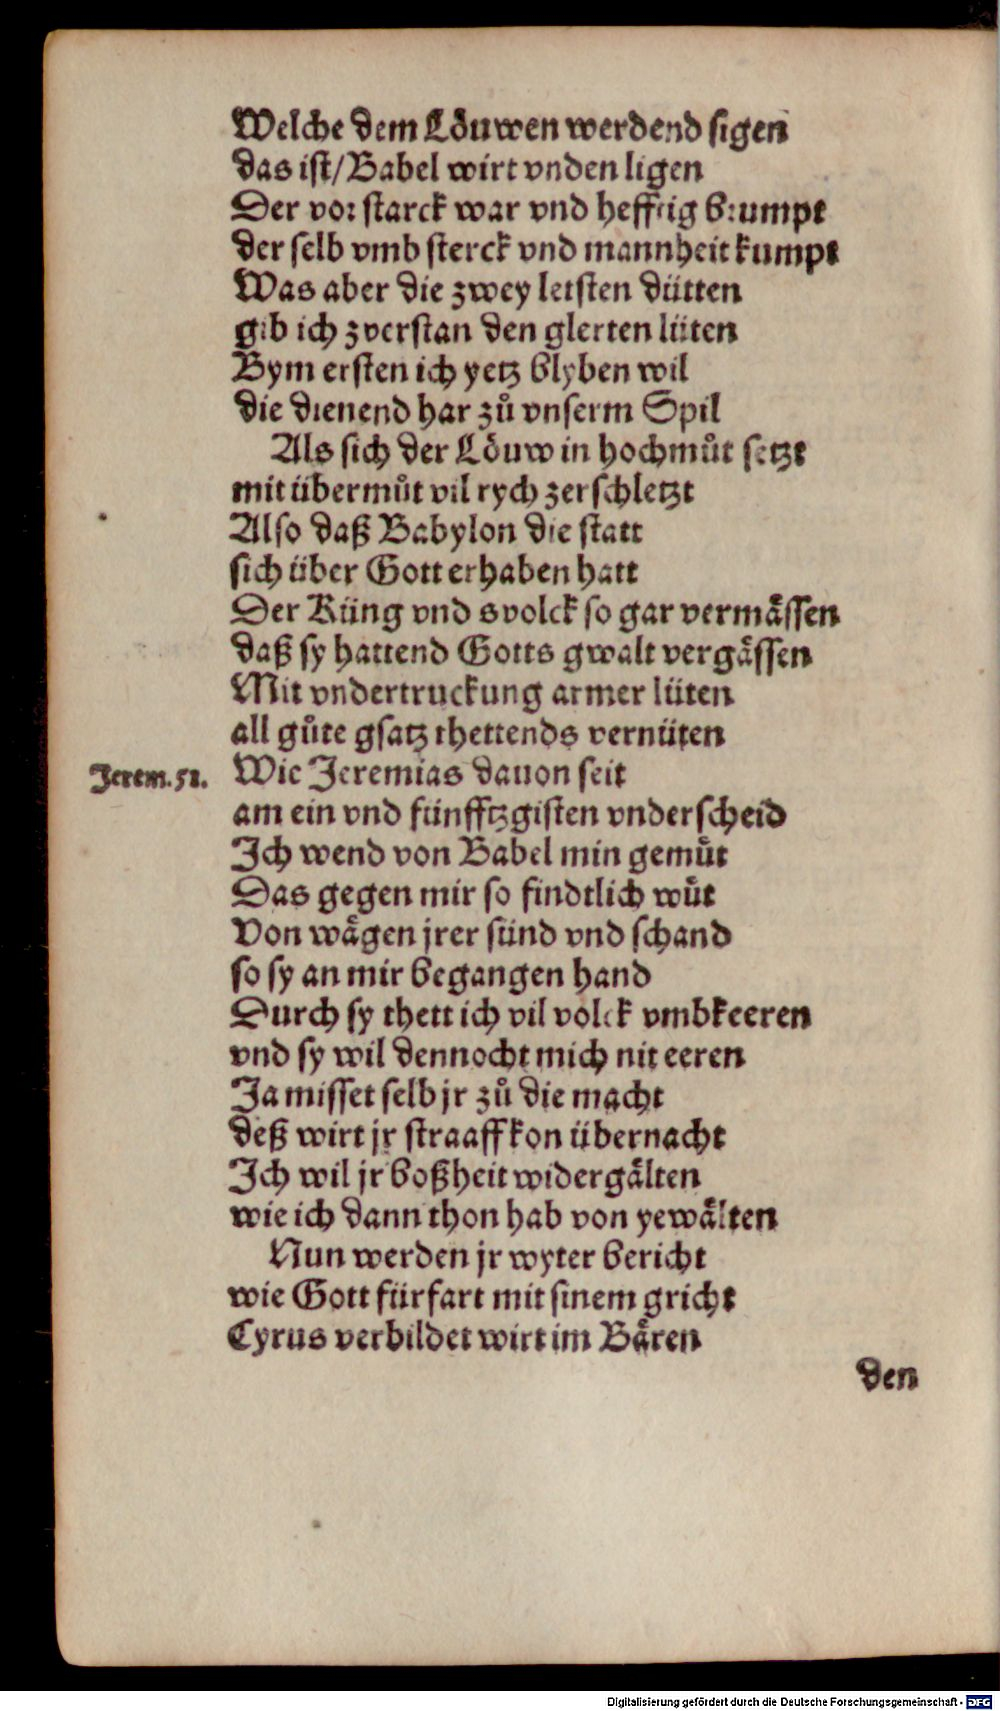 Welche dem Löuwen werdend sigen
das ist/ Babel wirt vnden ligen
Der vor starck war vnd hefftig brumpt
der selb vmb sterck vnd mannheit kumpt
Was aber die zwey letsten dütten
gib ich zverstan den glerten lüten
Bym ersten ich yetz blyben wil
die dienend har zuͦ vnserm Spil
Als sich der Löuw in hochmuͦt setzt
mit übermuͦt vil rych zerschletzt
Also daß Babylon die statt
sich über Gott erhaben hatt
Der Küng vnd svolck so gar vermässen
daß sy hattend Gotts gwalt vergässen
Mit vndertruckung armer lüten
all guͦte gsatz thettends vernüten
Jerem. 51. Wie Jeremias dauon seit
am ein vnd fünfftzgisten vnderscheid
Ich wend von Babel min gemuͤt
Das gegen mir so findtlich wuͤt
Von wägen jrer sünd vnd schand
so sy an mir begangen hand
Durch sy thett ich vil volck vmbkeeren
vnd sy wil dennocht mich nit eeren
Ja misset selb jr zuͦ die macht
deß wirt jr straaff kon übernacht
Ich wil jr boßheit widergälten
wie ich dann thon hab von yewälten
Nun werden jr wyter bericht
wie Gott fürfart mit sinem gricht
Cyrus verbildet wirt im Bären
den
Digitalisierung gefördert durch die Deutsche Forschungsgemeinschaft - DFG